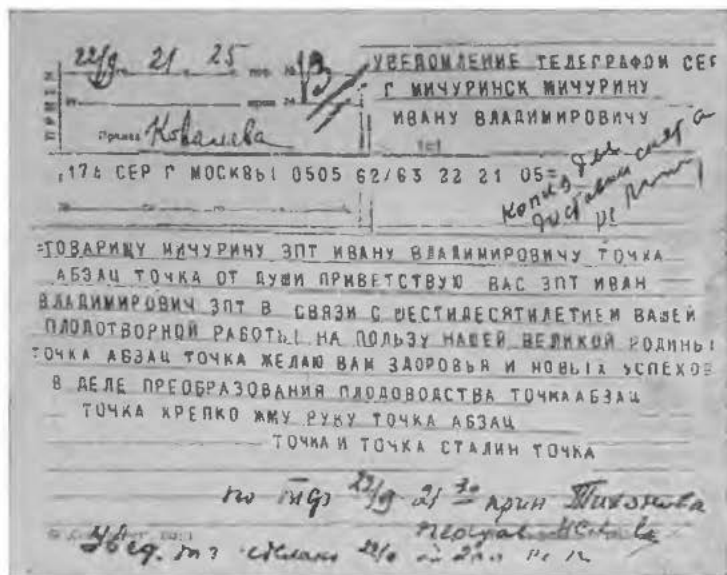 22/9 21 25
УВЕДОМЛЕНИЕ ТЕЛЕГРАФОМ СЕР
Г МИЧУРИНСК МИЧУРИНУ
ИВАНУ ВЛАДИМИРОВИЧУ
ПРИЕМ
Принял Ковалева
СЕР Г МОСКВЫ 0505 62/63 22 21 05=
=ТОВАРИЩУ МИЧУРИНУ ЗПТ ИВАНУ ВЛАДИМИРОВИЧУ ТОЧКА
АБЗАЦ ТОЧКА ОТ ДУШИ ПРИВЕТСТВУЮ ВАС ЗПТ ИВАН
ВЛАДИМИРОВИЧ ЗПТ В СВЯЗИ С ШЕСТИДЕСЯТИЛЕТИЕМ ВАШЕЙ
ПЛОДОТВОРНОЙ РАБОТЫ НА ПОЛЬЗУ НАШЕЙ ВЕЛИКОЙ РОДИНЫ
ТОЧКА АБЗАЦ ТОЧКА ЖЕЛАЮ ВАМ ЗДОРОВЬЯ И НОВЫХ УСПЕХОВ
В ДЕЛЕ ПРЕОБРАЗОВАНИЯ ПЛОДОВОДСТВА ТОЧКА АБЗАЦ
ТОЧКА КРЕПКО ЖМУ РУКУ ТОЧКА АБЗАЦ
ТОЧКА И ТОЧКА СТАЛИН ТОЧКА
по 22/9 21 30 прин Тихонова